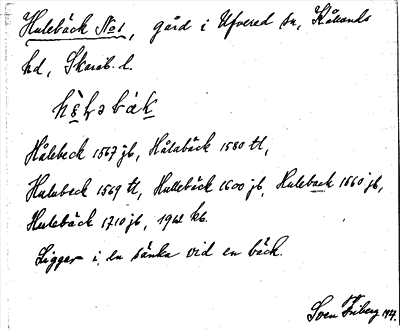 Hulebäck No 1, gård i Ufvered sn, Kållands
hd, Skarab. l.
hɵ̀lɘbäk
Hålebeck 1567 jb, Hålabäck 1580 tl,
Hulabeck 1569 tl, Hullebäck 1600 jb, Huleback 1660 jb,
Hulebäck 1710 jb, 1942 kb.
Ligger i en sänka vid en bäck.
Sven Friberg